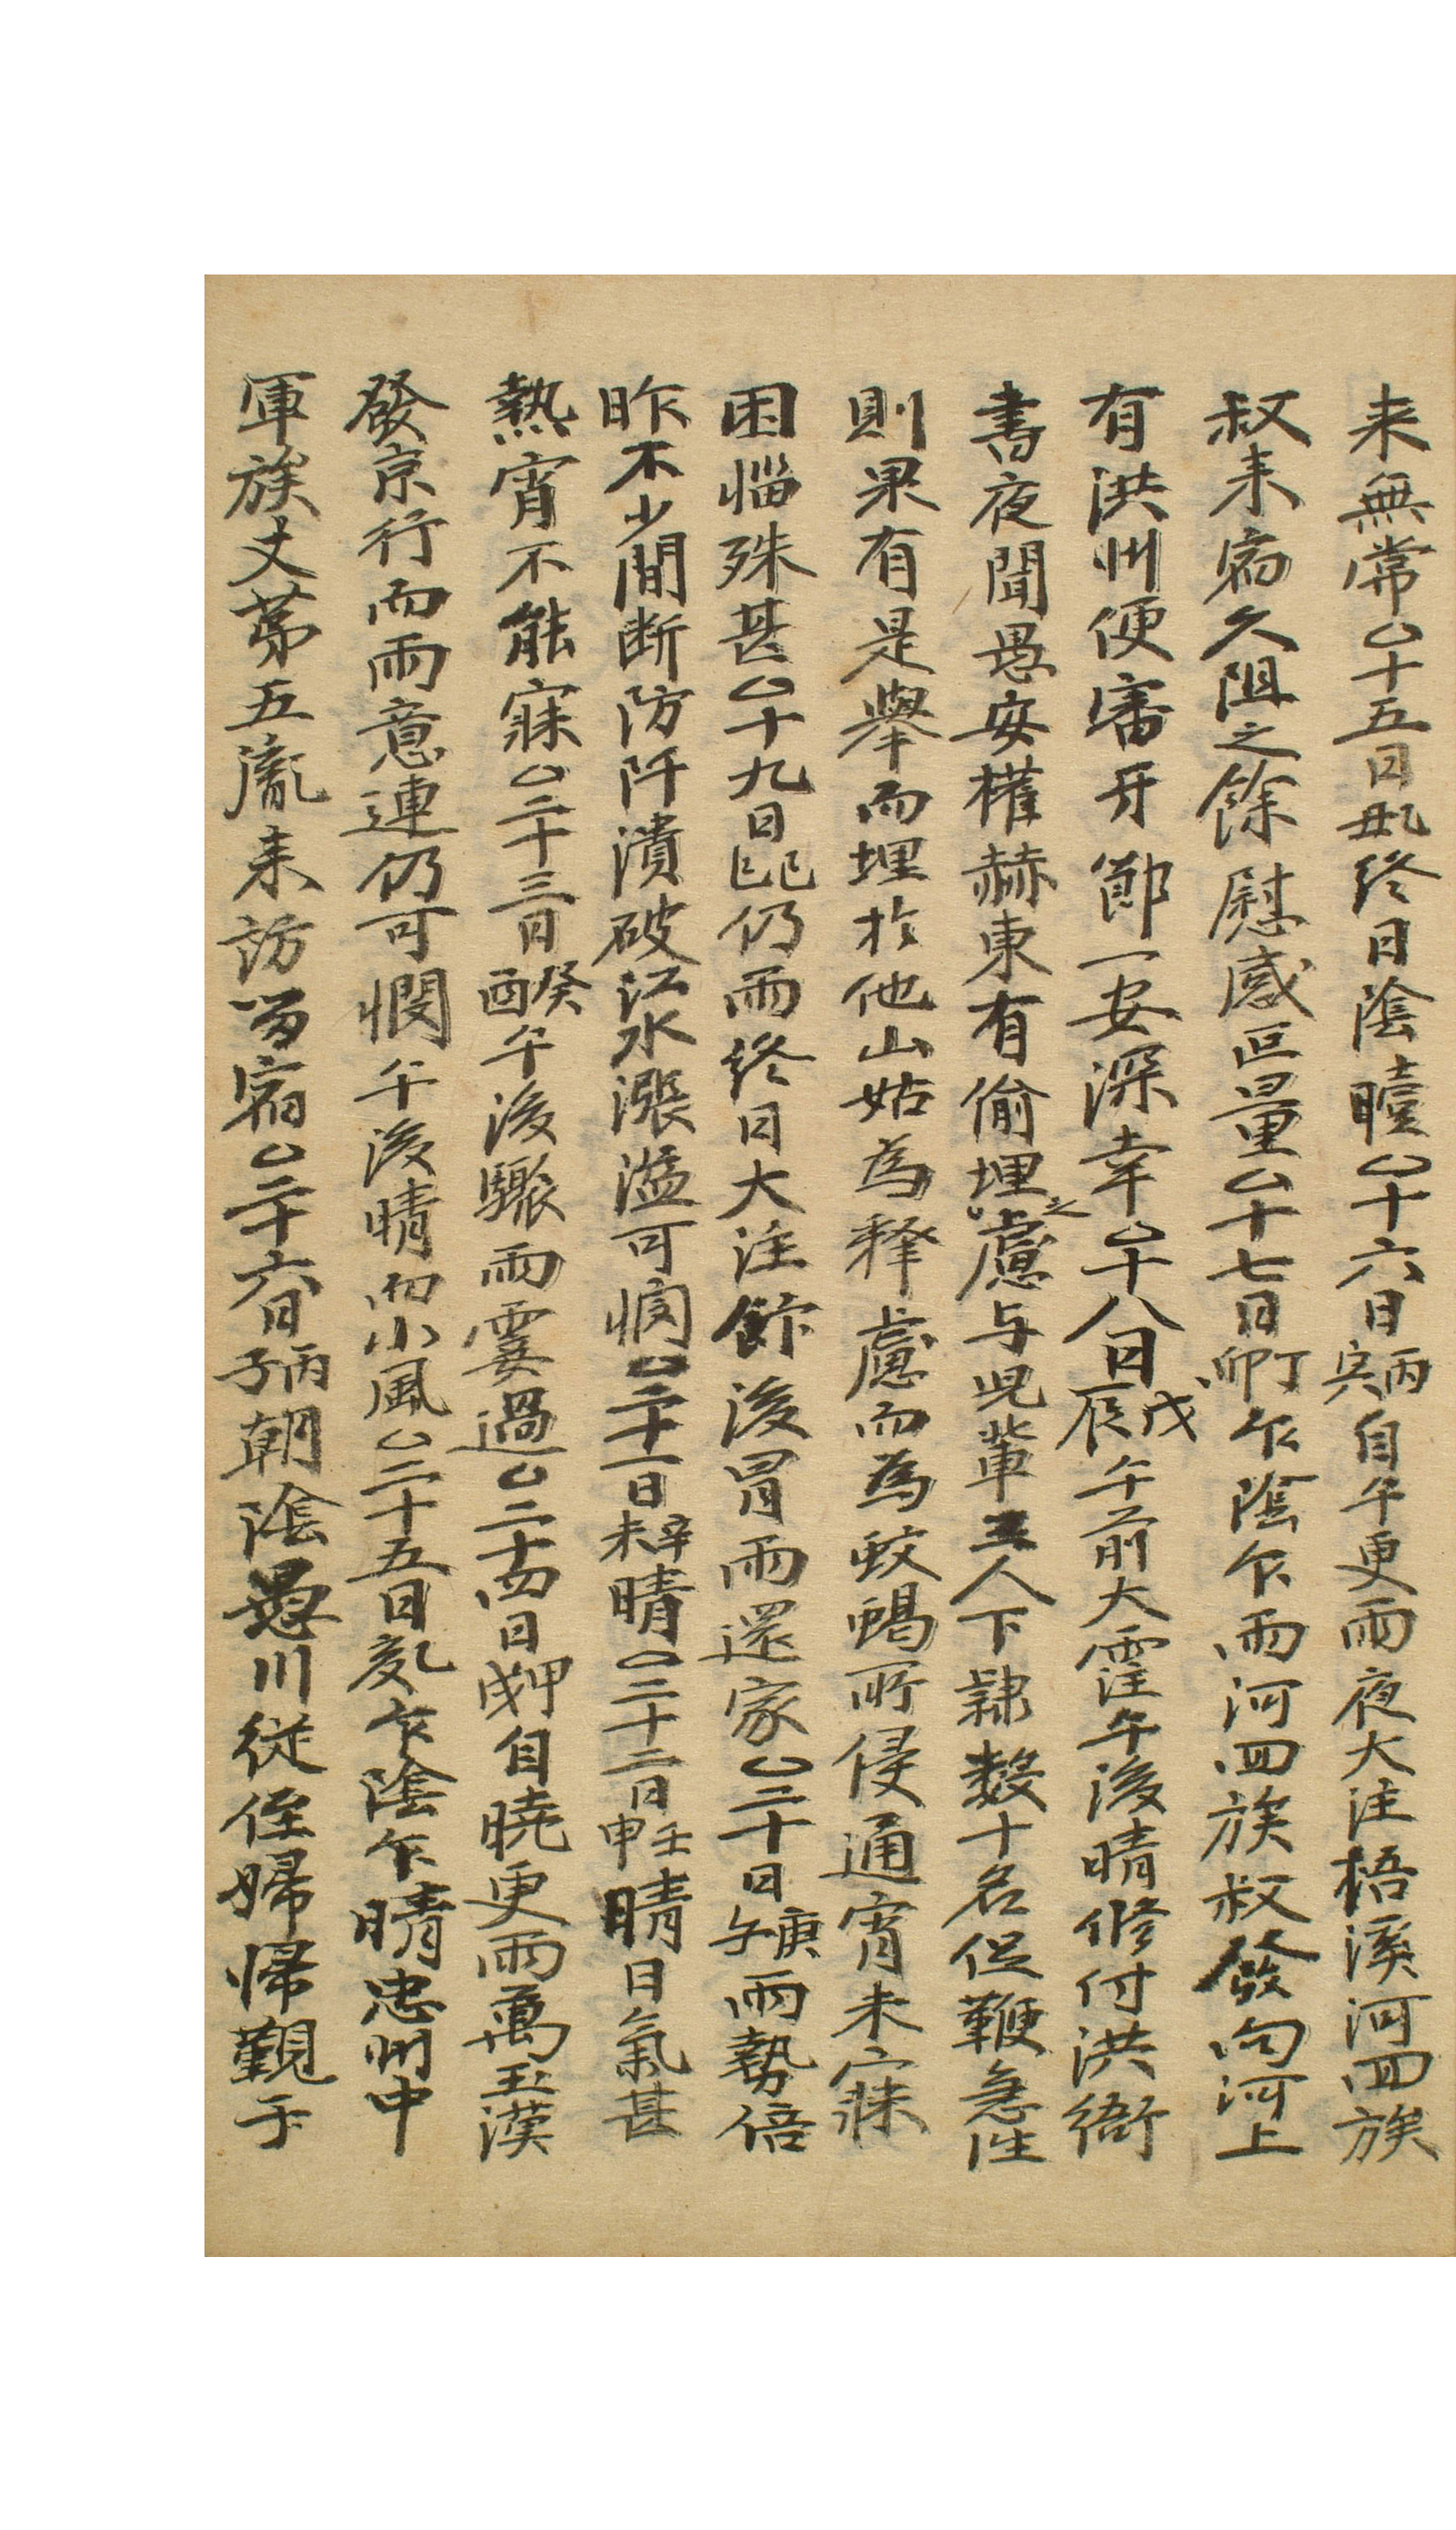 来無常○十五日乙丑終日陰曀○十六日丙寅自午更雨夜大注梧溪河四族
叔来宿久阻之餘慰感叵量○十七日丁卯乍陰乍雨河四族叔發向河上
有洪州便審牙節一安深幸○十八日戊辰午前大霔午後晴修付洪衙
書夜聞愚安權赫東有偷埋之慮与児輩五人下隷數十名促鞭急往
則果有是擧而埋於他山姑爲釋慮而爲蚊蝎所侵通宵未寐
困惱殊甚○十九日己巳仍雨終日大注飰後冒雨還家○二十日庚午雨勢倍
昨不少間断防阡潰破江水漲溢可憫○二十一日辛未晴○二十二日壬申晴日氣甚
熱宵不能寐○二十三日癸酉午後驟雨霎過○二十四日甲戌自曉更雨萬玉漢
發京行而雨意連仍可憫午後晴而小風○二十五日乙亥乍陰乍晴忠州中
軍族丈第五胤来訪留宿○二十六日丙子朝陰愚川從侄婦帰覲于